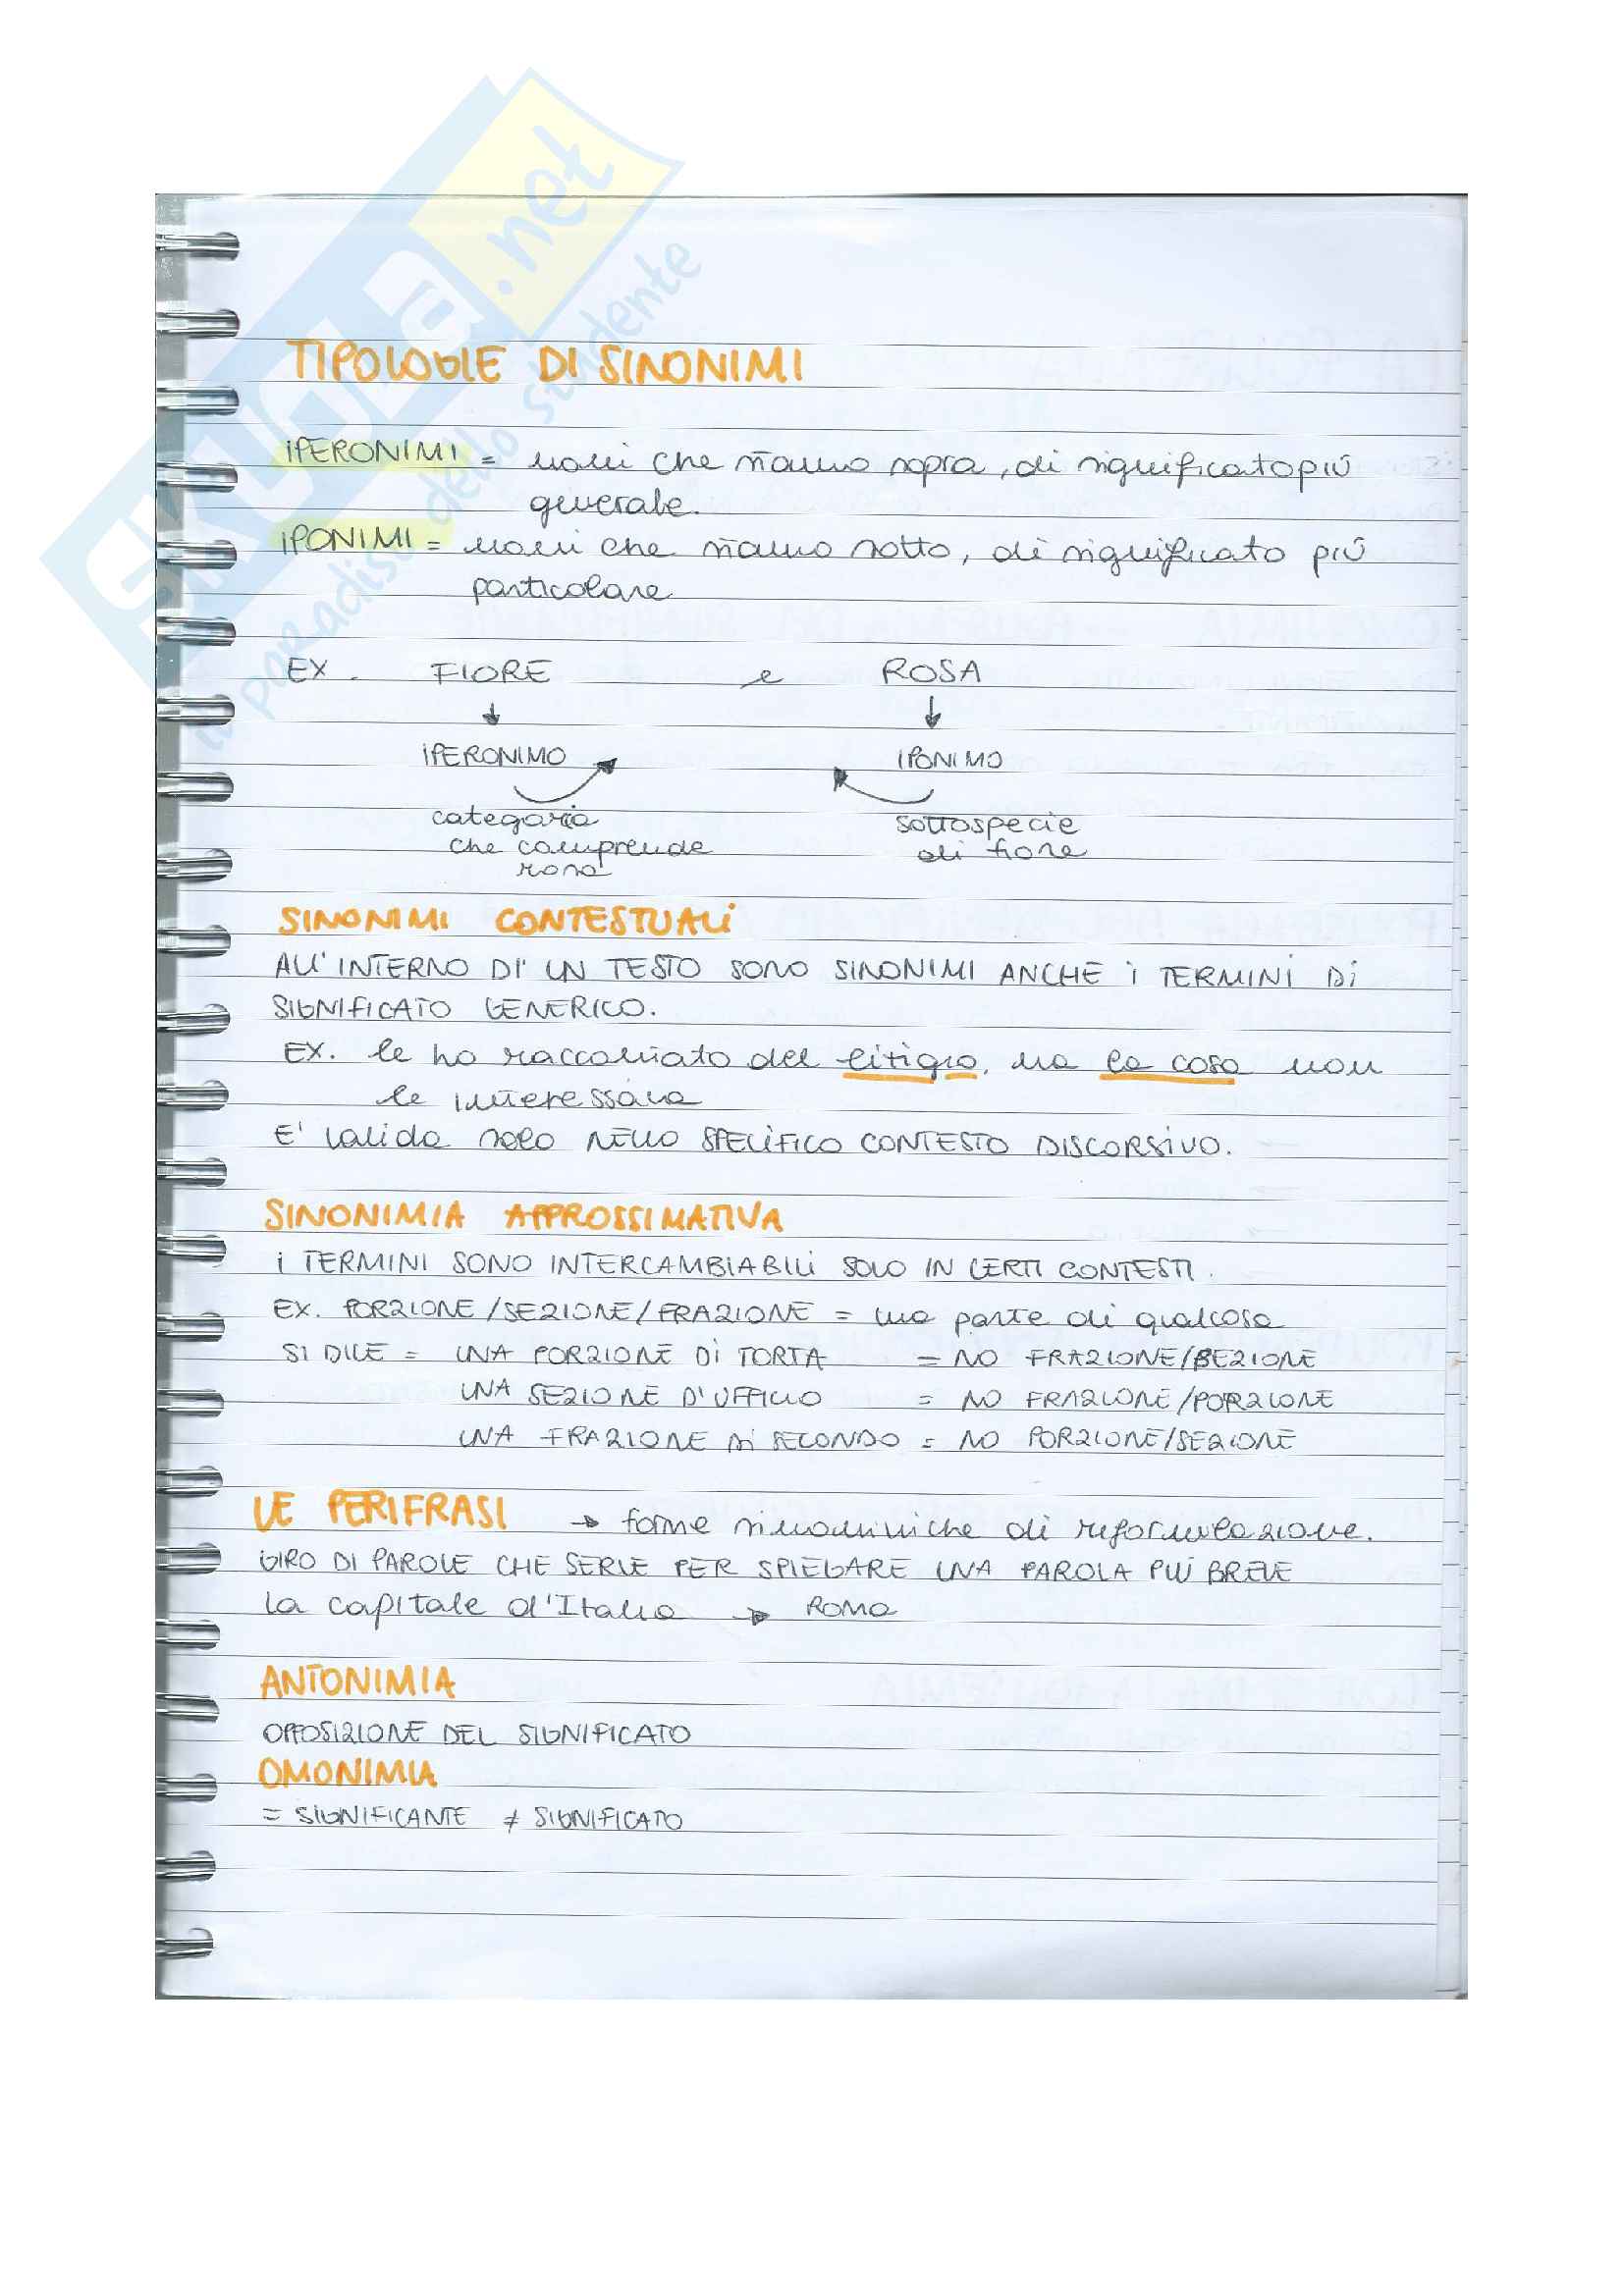 SKUOLa.net
il paradiso dello studente
TIPOLOGIE DI SINONIMI
IPERONIMI = nomi che stanno sopra, di significato più
generale.
IPONIMI = nomi che stanno sotto, di significato più
particolare
EX. FIORE e ROSA
IPERONIMO IPONIMO
categoria sottospecie
che comprende di fiore
rosa
SINONIMI CONTESTUALI
ALL'INTERNO DI UN TESTO SONO SINONIMI ANCHE I TERMINI DI
SIGNIFICATO GENERICO.
EX. le ho raccontato del litigio, ma la cosa non
le interessava
E' valida solo NELLO SPECIFICO CONTESTO DISCORSIVO.
SINONIMIA APPROSSIMATIVA
I TERMINI SONO INTERCAMBIABILI SOLO IN CERTI CONTESTI.
EX. PORZIONE/SEZIONE/FRAZIONE = una parte di qualcosa
SI DICE = UNA PORZIONE DI TORTA = NO FRAZIONE/SEZIONE
UNA SEZIONE D'UFFICIO = NO FRAZIONE/PORZIONE
UNA FRAZIONE DI SECONDO = NO PORZIONE/SEZIONE
LE PERIFRASI → forme sinonimiche di riformulazione.
GIRO DI PAROLE CHE SERVE PER SPIEGARE UNA PAROLA PIÙ BREVE
la capitale d'Italia → ROMA
ANTONIMIA
OPPOSIZIONE DEL SIGNIFICATO
OMONIMIA
= SIGNIFICANTE ≠ SIGNIFICATO